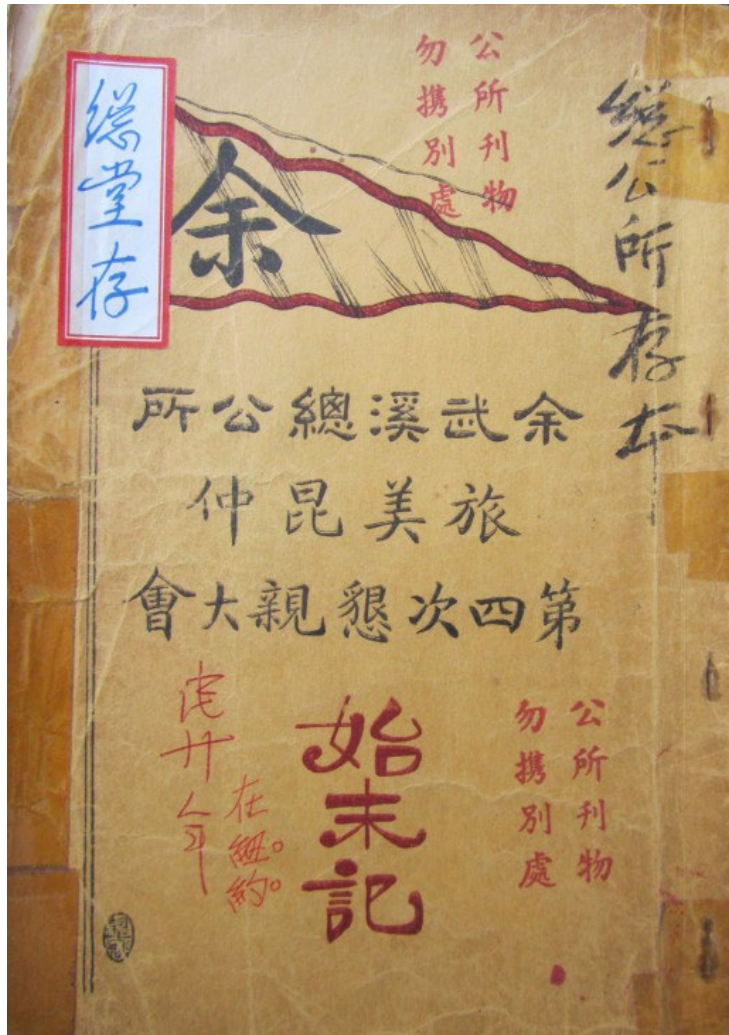 總公所存本
公所刊物
勿携別處
總堂存
余
余武溪總公所
旅美昆仲
第四次懇親大會
始末記
公所刊物
勿携別處
在紐約。
廿八年